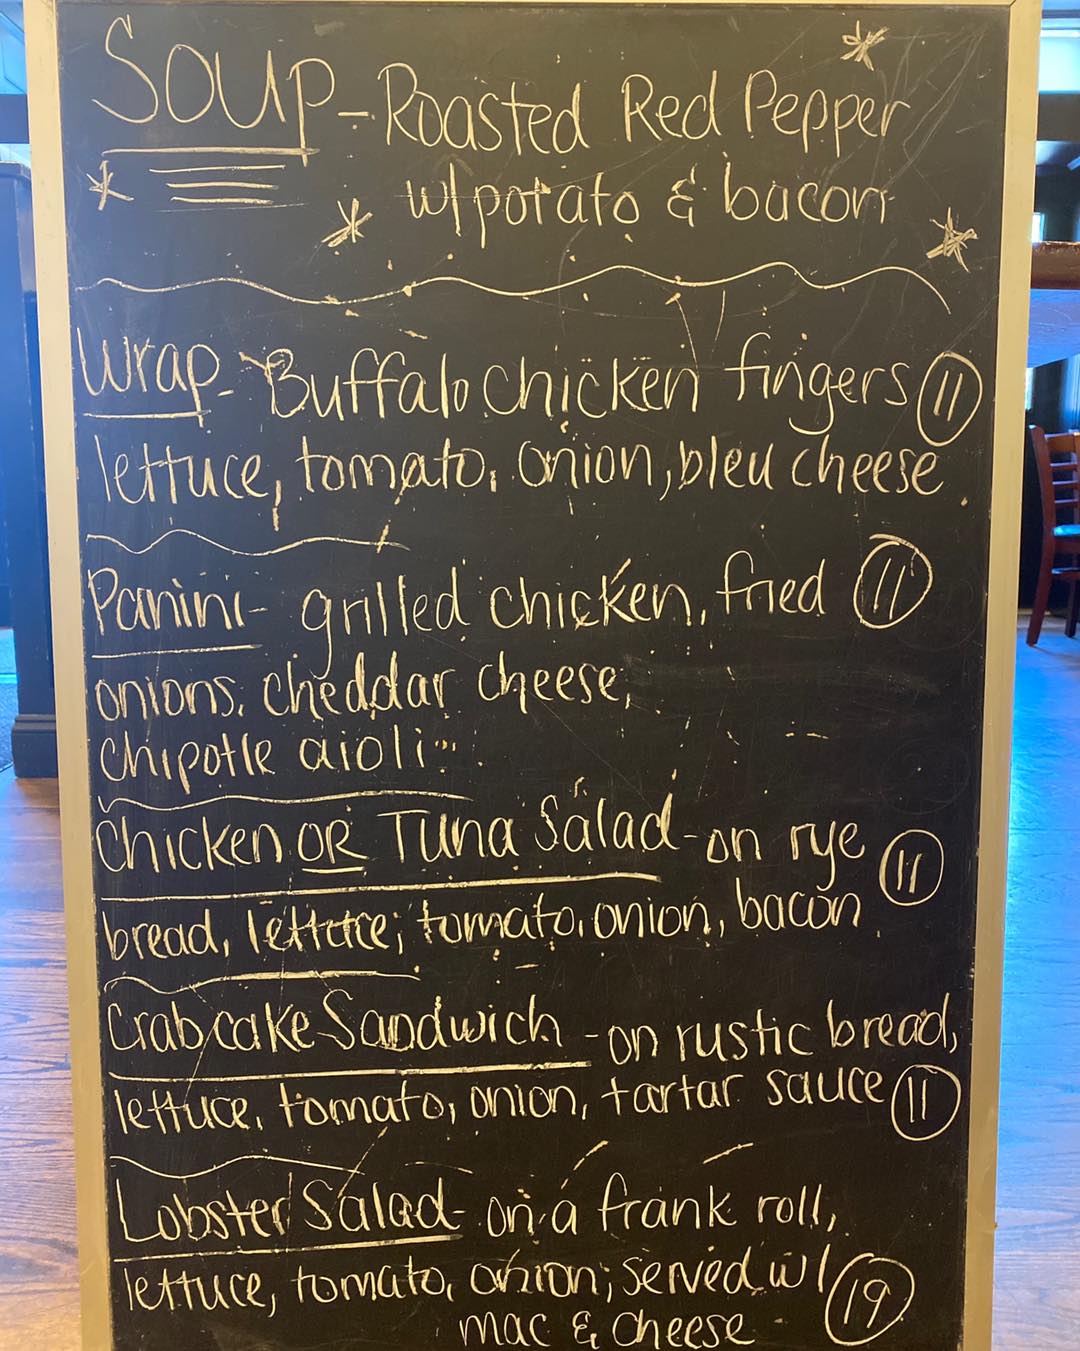 Soup - Roasted Red Pepper
w/ potato & bacon
Wrap - Buffalo chicken fingers 11
lettuce, tomato, onion, bleu cheese
Panini - grilled chicken, fried 11
onions, cheddar cheese,
chipotle aioli
Chicken OR Tuna Salad - on rye 11
bread, lettuce, tomato, onion, bacon
Crabcake Sandwich - on rustic bread,
lettuce, tomato, onion, tartar sauce 11
Lobster Salad - on a frank roll,
lettuce, tomato, onion; served w/ 19
mac & cheese